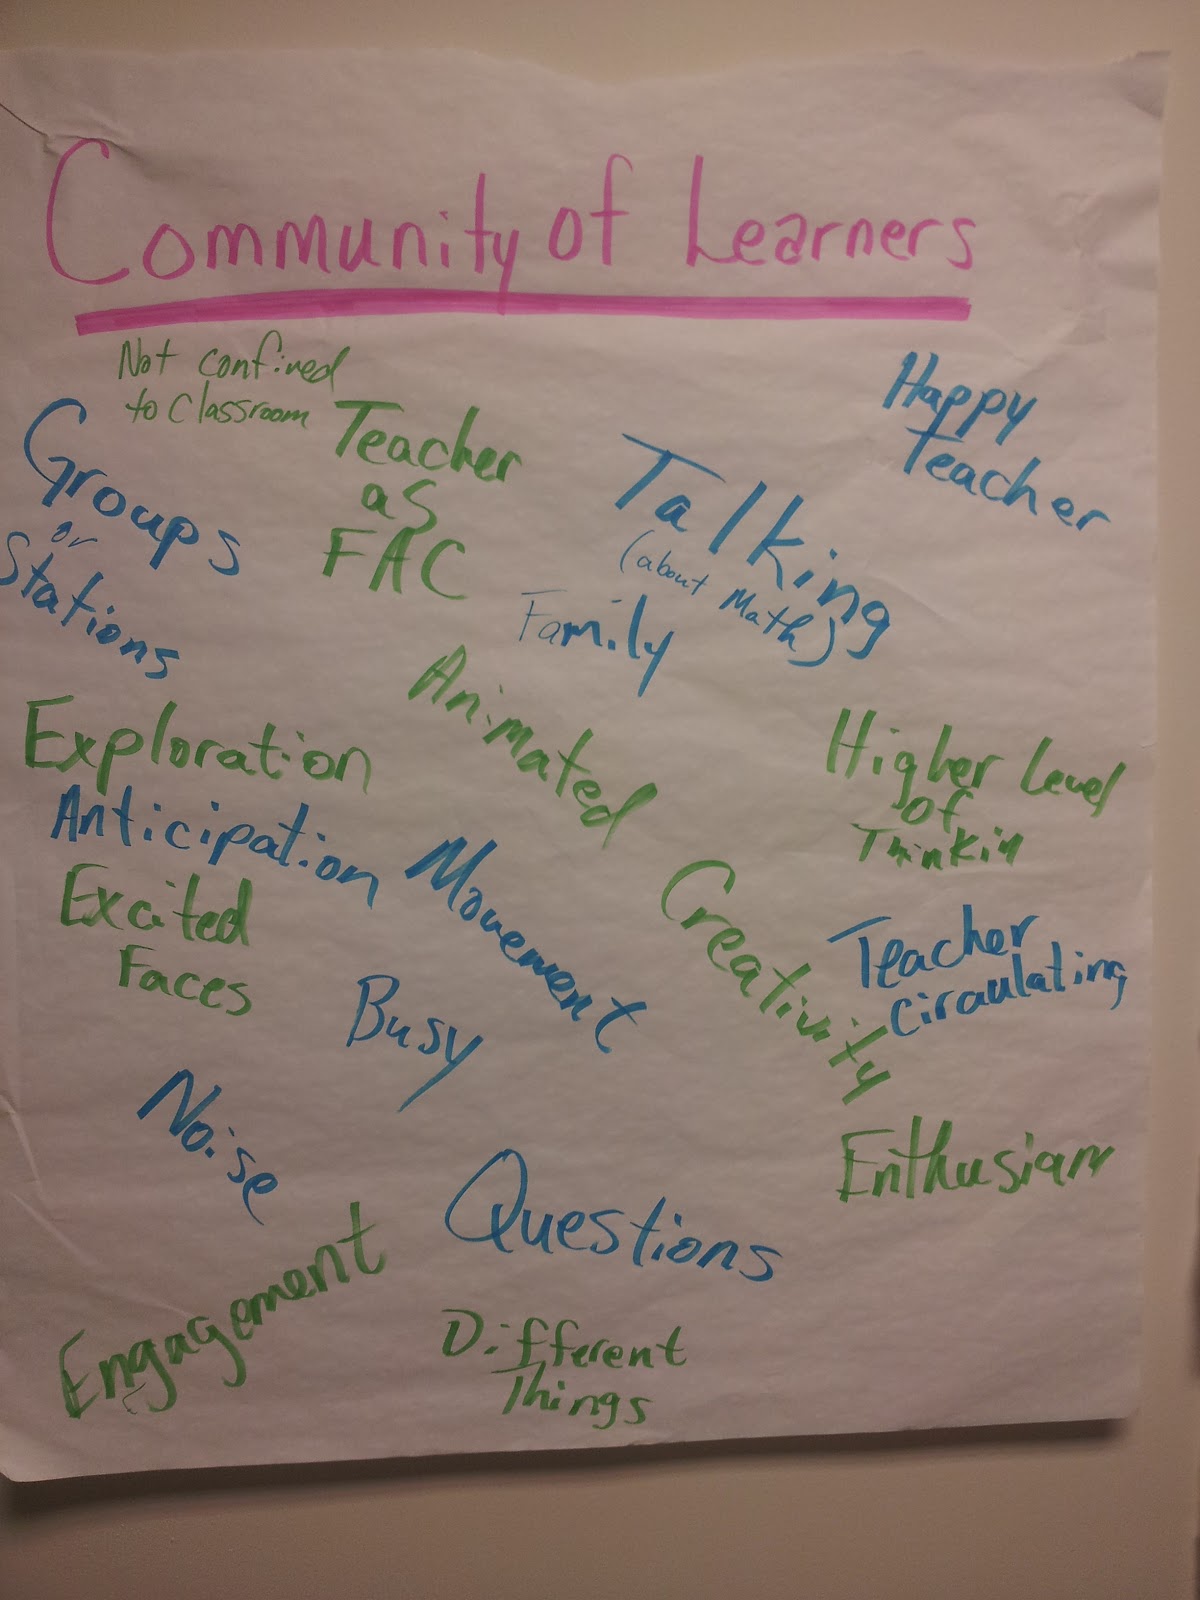 Community of Learners
Not confined
to classroom
Happy
Teacher
Groups
or
Stations
Teacher
as
FAC
Talking
(about Math)
Family
Animated
Exploration
Higher Level
of
Thinkin
Anticipation
Movement
Excited
Faces
Creativity
Teacher
Ciraulating
Busy
Noise
Enthusiam
Questions
Engagement
Different
Things